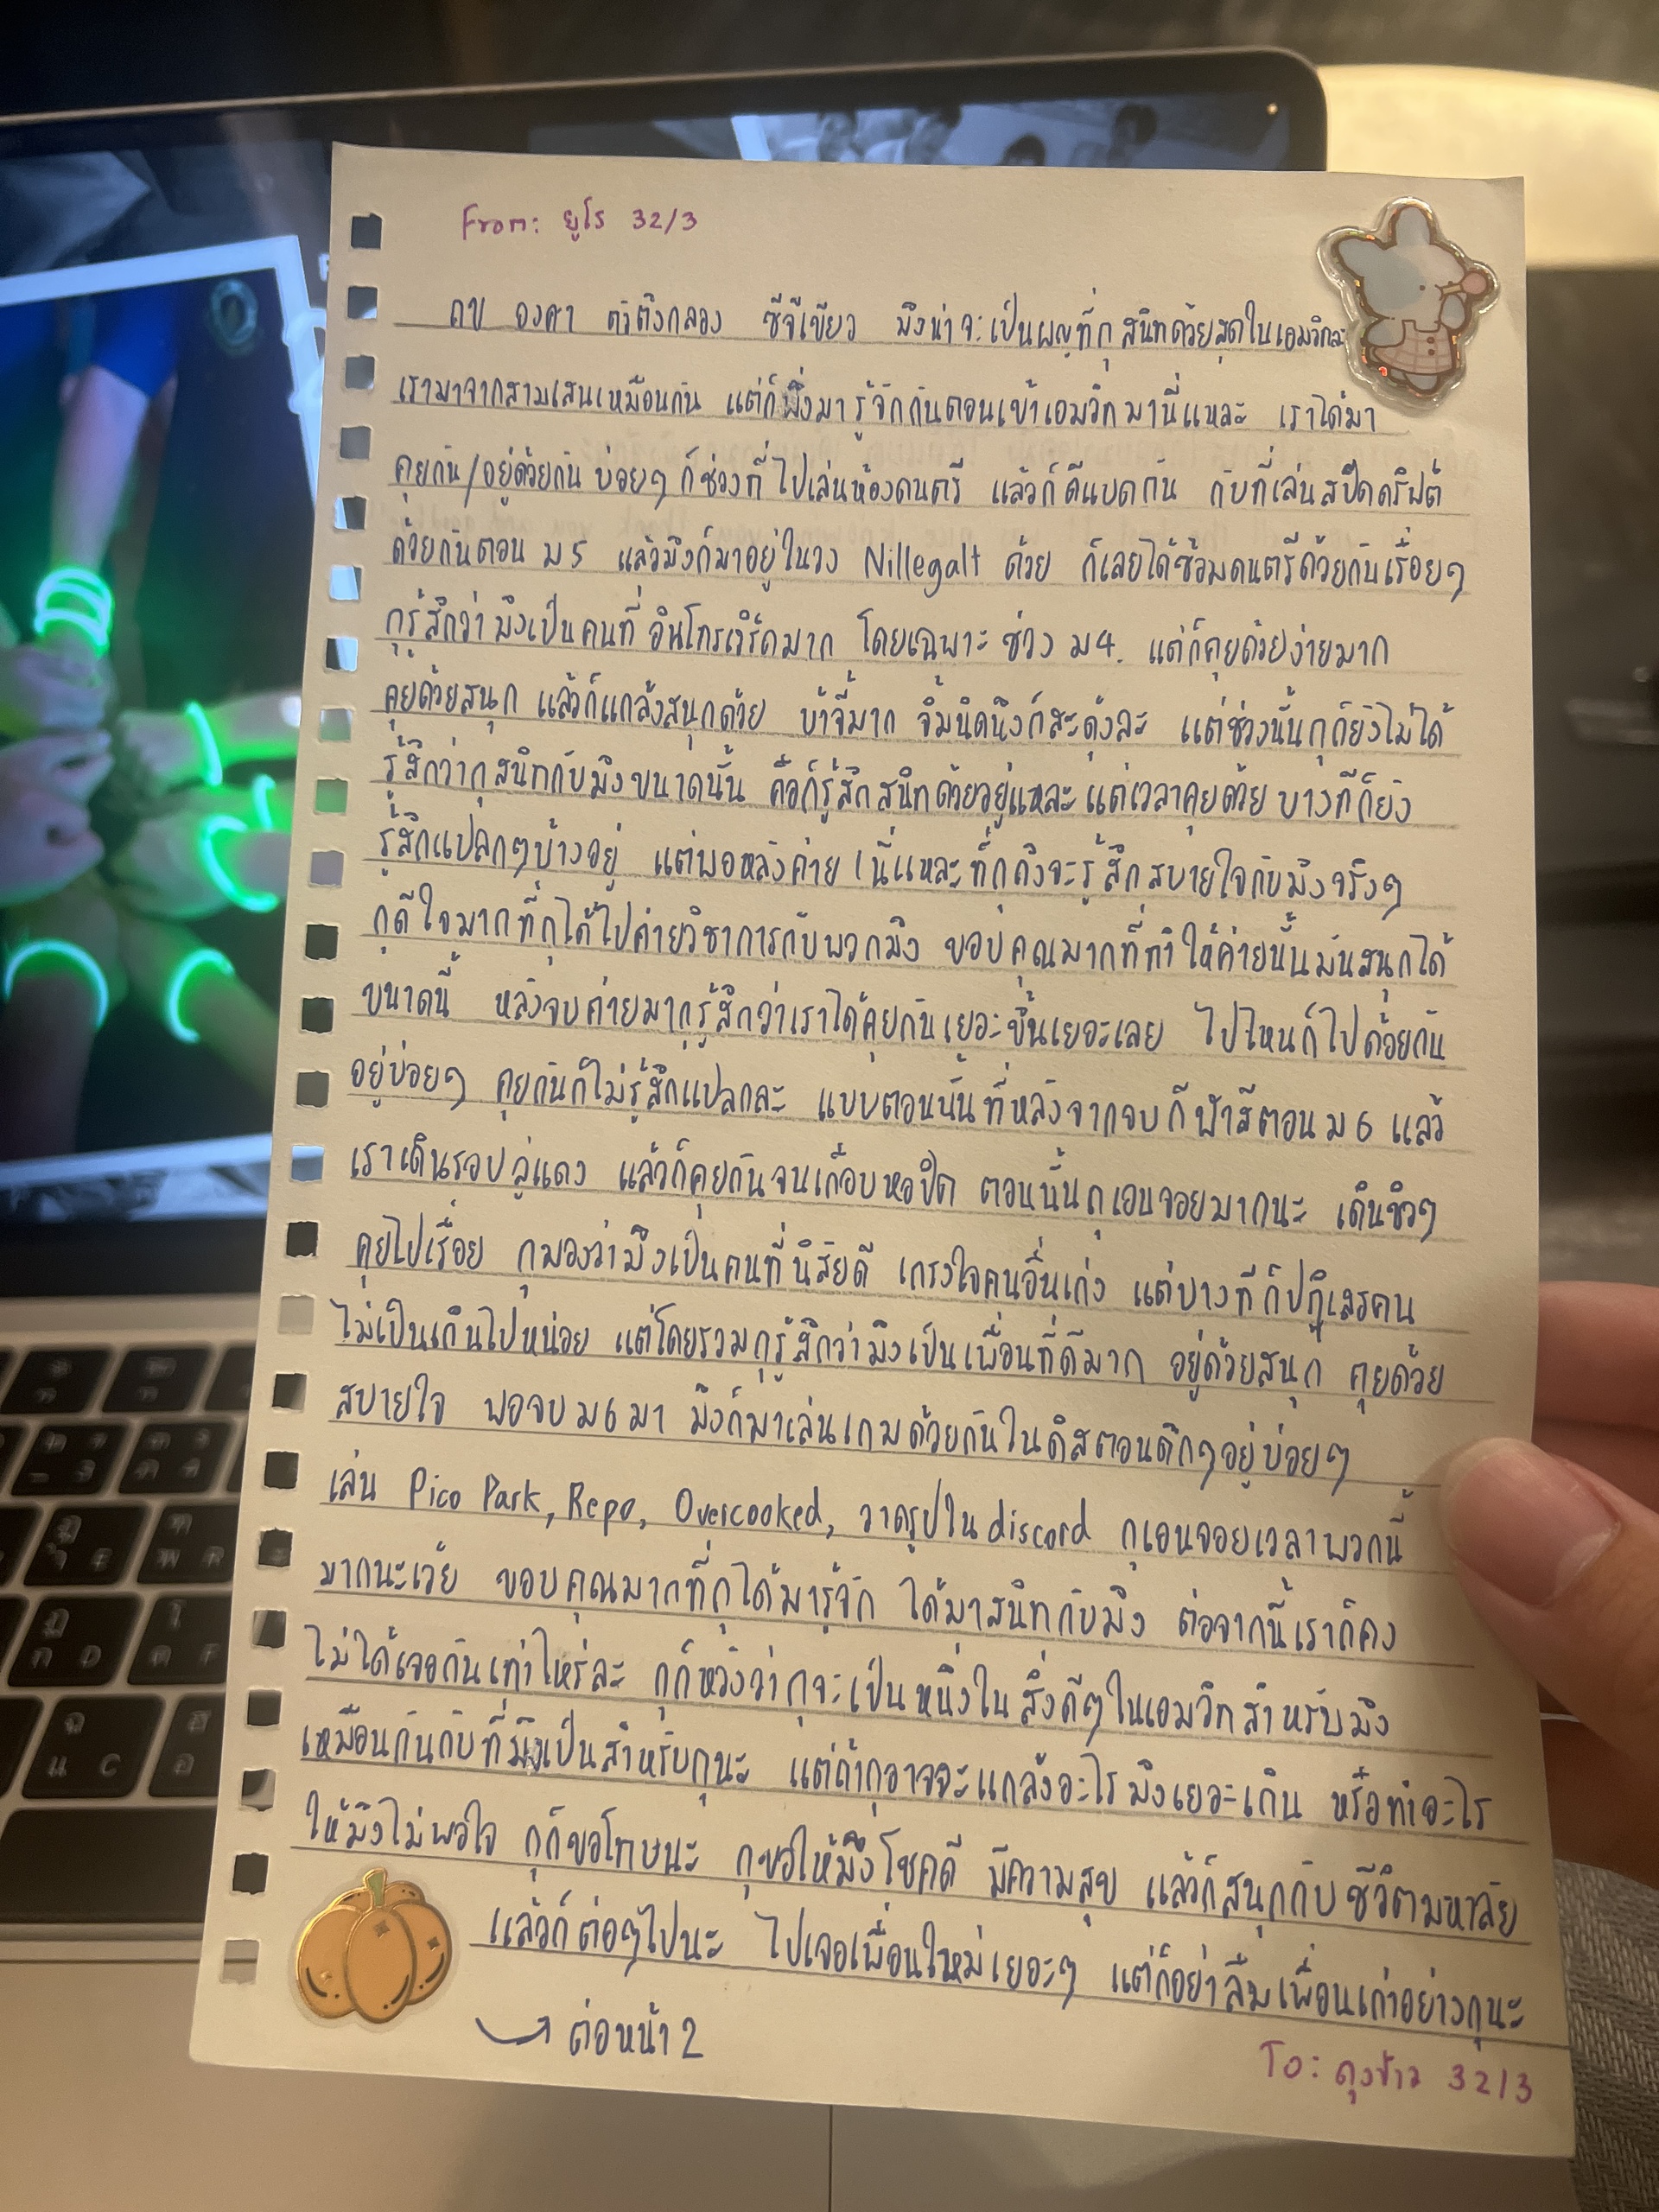 From: ยูโร 32/3
ถข องศา ตัวตึงกลอง ซีจีเขียว มึงน่าจะเป็นผญที่กุสนิทด้วยสุดในเอมวิทละ
เรามาจากสามเสนเหมือนกัน แต่ก็พึ่งมารู้จักกันตอนเข้าเอมวิทมานี่แหละ เราได้มา
คุยกัน/อยู่ด้วยกันบ่อยๆก็ช่วงที่ไปเล่นห้องดนตรี แล้วก็ตีแบดกัน กับที่เล่นสปีดดริฟต์
ด้วยกันตอน ม5 แล้วมึงก็มาอยู่ในวง Nillegalt ด้วย ก็เลยได้ซ้อมดนตรีด้วยกันเรื่อยๆ
กุรู้สึกว่ามึงเป็นคนที่อินโทรเวิร์ตมาก โดยเฉพาะช่วง ม4. แต่ก็คุยด้วยง่ายมาก
คุยด้วยสนุก แล้วก็แกล้งสนุกด้วย บ้าจี้มาก จิ้มนิดนึงก็สะดุ้งละ แต่ช่วงนั้นกุก็ยังไม่ได้
รู้สึกว่ากุสนิทกับมึงขนาดนั้น คือก็รู้สึกสนิทด้วยอยู่แหละ แต่เวลาคุยด้วยบางทีก็ยัง
รู้สึกแปลกๆบ้างอยู่ แต่พอหลังค่าย เนี่แหละที่กุถึงจะรู้สึกสบายใจกับมึงจริงๆ
กุดีใจมากที่กุได้ไปค่ายวิชาการกับพวกมึง ขอบคุณมากที่ทำให้ค่ายนั้นมันสนุกได้
ขนาดนี้ หลังจบค่ายมากุรู้สึกว่าเราได้คุยกันเยอะขึ้นเยอะเลย ไปไหนก็ไปด้วยกัน
อยู่บ่อยๆ คุยกันก็ไม่รู้สึกแปลกละ แบบตอนนั้นที่หลังจากจบกีฬาสีตอน ม6 แล้ว
เราเดินรอบลู่แดง แล้วก็คุยกันจนเกือบหอปิด ตอนนั้นกุเอนจอยมากนะ เดินชิวๆ
คุยไปเรื่อย กุมองว่ามึงเป็นคนที่นิสัยดี เกรงใจคนอื่นเก่ง แต่บางทีก็ปฏิเสธคน
ไม่เป็นเกินไปหน่อย แต่โดยรวมกุรู้สึกว่ามึงเป็นเพื่อนที่ดีมาก อยู่ด้วยสนุก คุยด้วย
สบายใจ พอจบ ม6 มา มึงก็มาเล่นเกมด้วยกันในดิสตอนดึกๆอยู่บ่อยๆ
เล่น Pico Park, Repo, Overcooked, วาดรูปใน discord กุเอนจอยเวลาพวกนี้
มากนะเว้ย ขอบคุณมากที่กุได้มารู้จัก ได้มาสนิทกับมึง ต่อจากนี้เราก็คง
ไม่ได้เจอกันเท่าไหร่ละ กุก็หวังว่ากุจะเป็นหนึ่งในสิ่งดีๆในเอมวิทสำหรับมึง
เหมือนกันกับที่มึงเป็นสำหรับกุนะ แต่ถ้ากุอาจจะแกล้งอะไรมึงเยอะเกิน หรือทำอะไร
ให้มึงไม่พอใจ กุก็ขอโทษนะ กุขอให้มึงโชคดี มีความสุข แล้วก็สนุกกับชีวิตมหาลัย
แล้วก็ต่อๆไปนะ ไปเจอเพื่อนใหม่เยอะๆ แต่ก็อย่าลืมเพื่อนเก่าอย่างกุนะ
ต่อหน้า 2
To: ถุงข้าว 32/3